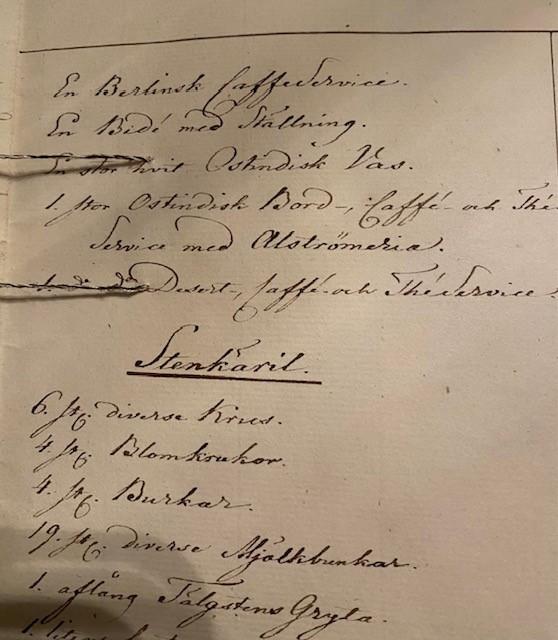 En Berlinsk Caffe Service.
En Bidé med Ställning.
En stor hvit Ostindisk Vas.
1. stor Ostindisk Bord-, Caffé- och Thé-
Service med Alströmeria.
1. de do Desert-, Caffé- och Thé Service
Stenkäril.
6. st. diverse Krus.
4. st. Blomkrukor.
4. st. Burkar.
19. st. diverse Mjölkbunkar.
1. aflång Talgstens Gryta.
1. liten